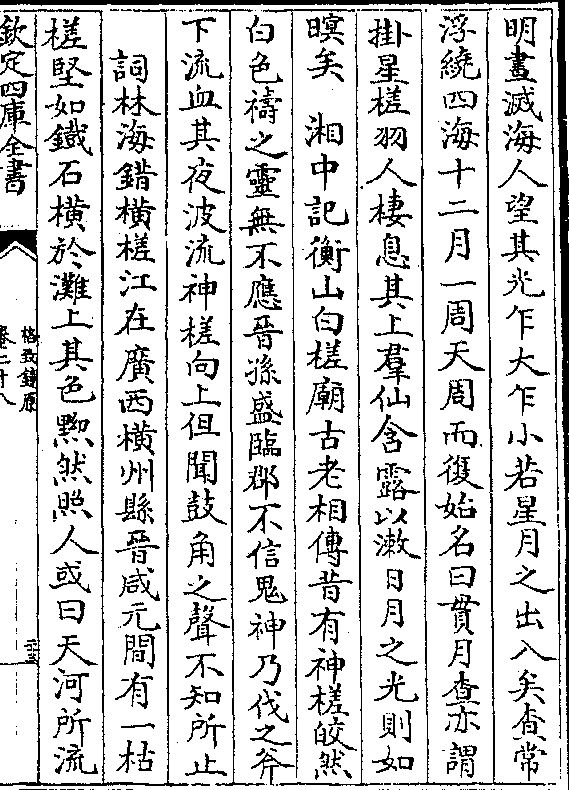 明晝滅海人望其光乍大乍小若星月之出入矣查常
浮繞四海十二月一周天周而復始名曰貫月查亦謂
掛星槎羽人棲息其上羣仙含露以漱日月之光則如
暝矣　湘中記衡山白槎廟古老相傳昔有神槎皎然
白色禱之靈無不應晉孫盛臨郡不信鬼神乃伐之斧
下流血其夜波流神槎向上但聞鼓角之聲不知所止
詞林海錯橫槎江在廣西橫州縣晉咸元間有一枯
槎堅如鐵石橫於灘上其色黝然照人或曰天河所流
欽定四庫全書
格致鏡原
卷二十八